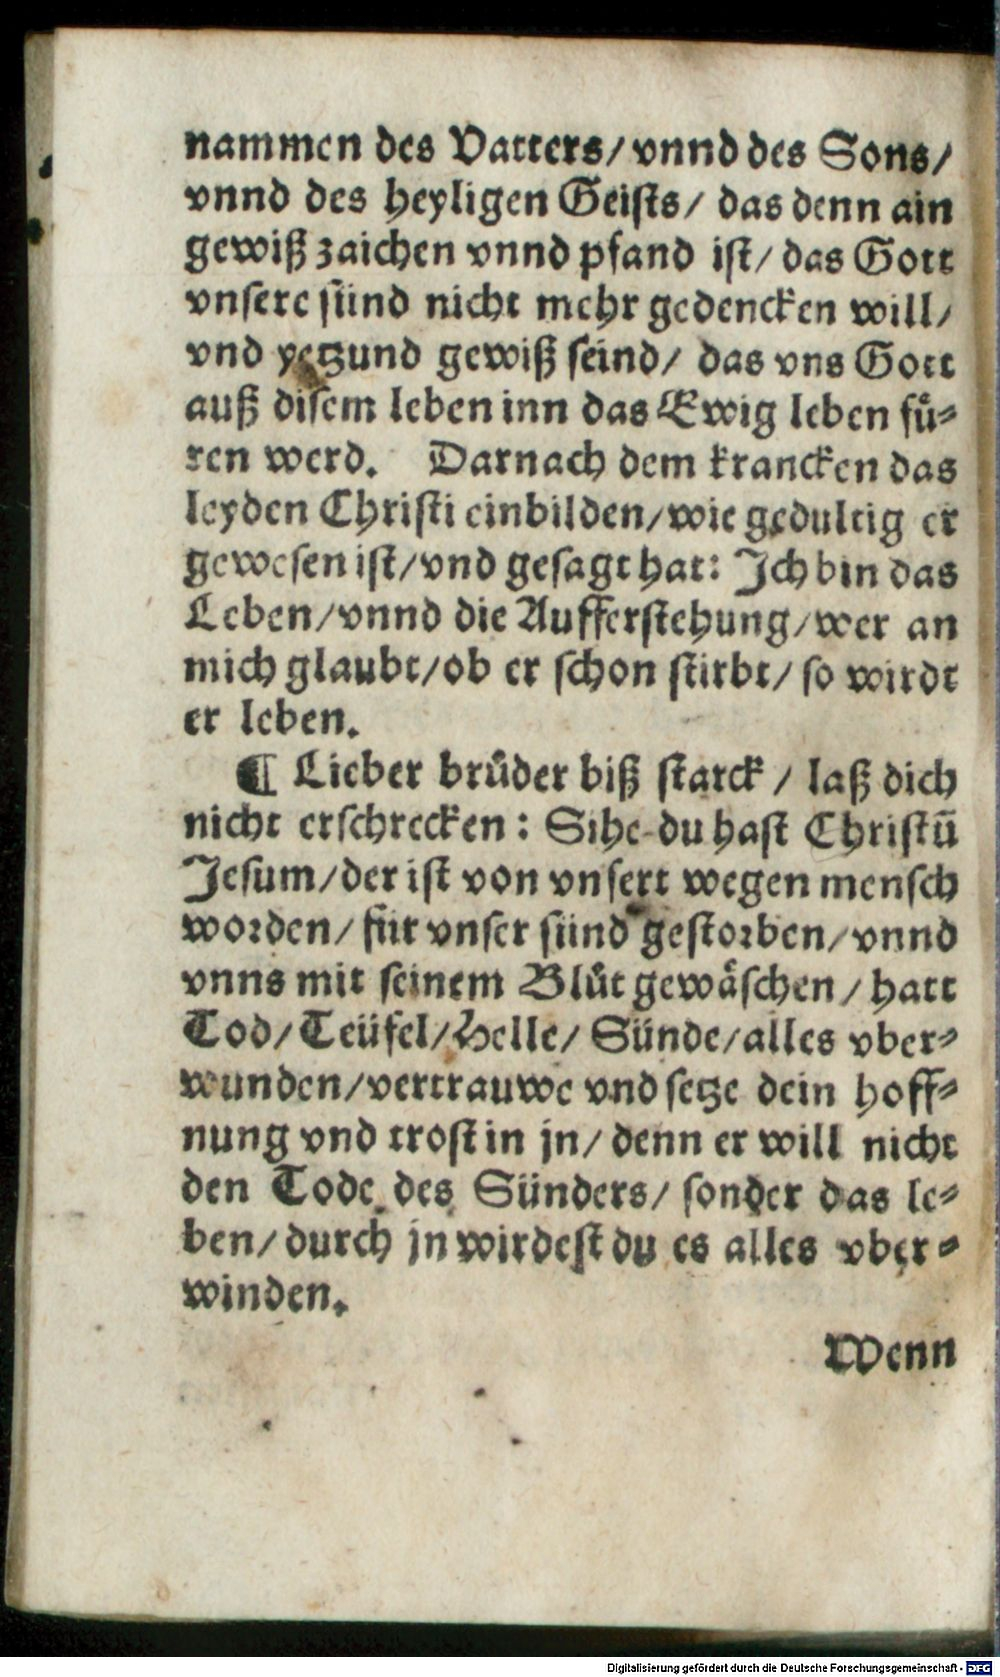 nammen des Vatters/ vnnd des Sons/
vnnd des heyligen Geists/ das denn ain
gewiß zaichen vnnd pfand ist/ das Gott
vnsere sünd nicht mehr gedencken will/
vnd yetzund gewiß seind/ das vns Gott
auß disem leben inn das Ewig leben fuͤ⸗
ren werd. Darnach dem krancken das
leyden Christi einbilden/wie gedultig er
gewesen ist/vnd gesagt hat: Ich bin das
Leben/vnnd die Aufferstehung/wer an
mich glaubt/ob er schon stirbt/ so wirdt
er leben.
¶ Lieber bruͦder biß starck / laß dich
nicht erschrecken: Sihe du hast Christū
Jesum/der ist von vnsert wegen mensch
worden/ für vnser sünd gestorben/vnnd
vnns mit seinem Bluͦt gewaͤschen/ hatt
Tod/Teüfel/Helle/ Sünde/alles vber⸗
wunden/vertrauwe vnd setze dein hoff⸗
nung vnd trost in jn/ denn er will nicht
den Tode des Sünders/ sonder das le⸗
ben/durch jn wirdest du es alles vber⸗
winden.
Wenn
Digitalisierung gefördert durch die Deutsche Forschungsgemeinschaft - DFG